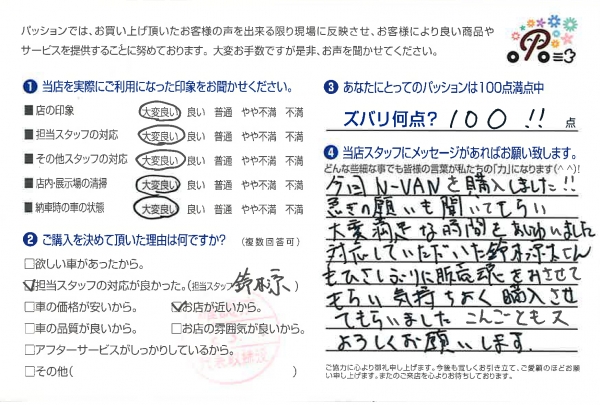 パッションでは、お買い上げ頂いたお客様の声を出来る限り現場に反映させ、お客様により良い商品や
サービスを提供することに努めております。大変お手数ですが是非、お声を聞かせてください。
❶ 当店を実際にご利用になった印象をお聞かせください。
■店の印象 大変良い 良い 普通 やや不満 不満
■担当スタッフの対応 大変良い 良い 普通 やや不満 不満
■その他スタッフの対応 大変良い 良い 普通 やや不満 不満
■店内・展示場の清掃 大変良い 良い 普通 やや不満 不満
■納車時の車の状態 大変良い 良い 普通 やや不満 不満
❷ ご購入を決めて頂いた理由は何ですか? (複数回答可)
□欲しい車があったから。
☑担当スタッフの対応が良かった。(担当スタッフ 鈴木涼)
□車の価格が安いから。 ☑お店が近いから。
□車の品質が良いから。 □お店の雰囲気が良いから。
□アフターサービスがしっかりしているから。
□その他( )
❸ あなたにとってのパッションは100点満点中
ズバリ何点? 100 !! 点
❹ 当店スタッフにメッセージがあればお願い致します。
どんな些細な事でも皆様の言葉が私たちの「力」になります(^^)!
今回 N-VANを購入しました!!
急ぎの願いも聞いてもらい
大変 な時間を しました
対応していただいた鈴木涼太くん
もひさしぶりに をみさせて
もらい 気持ちよく購入させ
てもらいました こんごともス
よろしくお願いします。
ご協力に心より御礼申し上げます。今後も宜しくお引き立て、ご愛顧のほどお願い申し上げます。またのご来店を心よりお待ちしております。